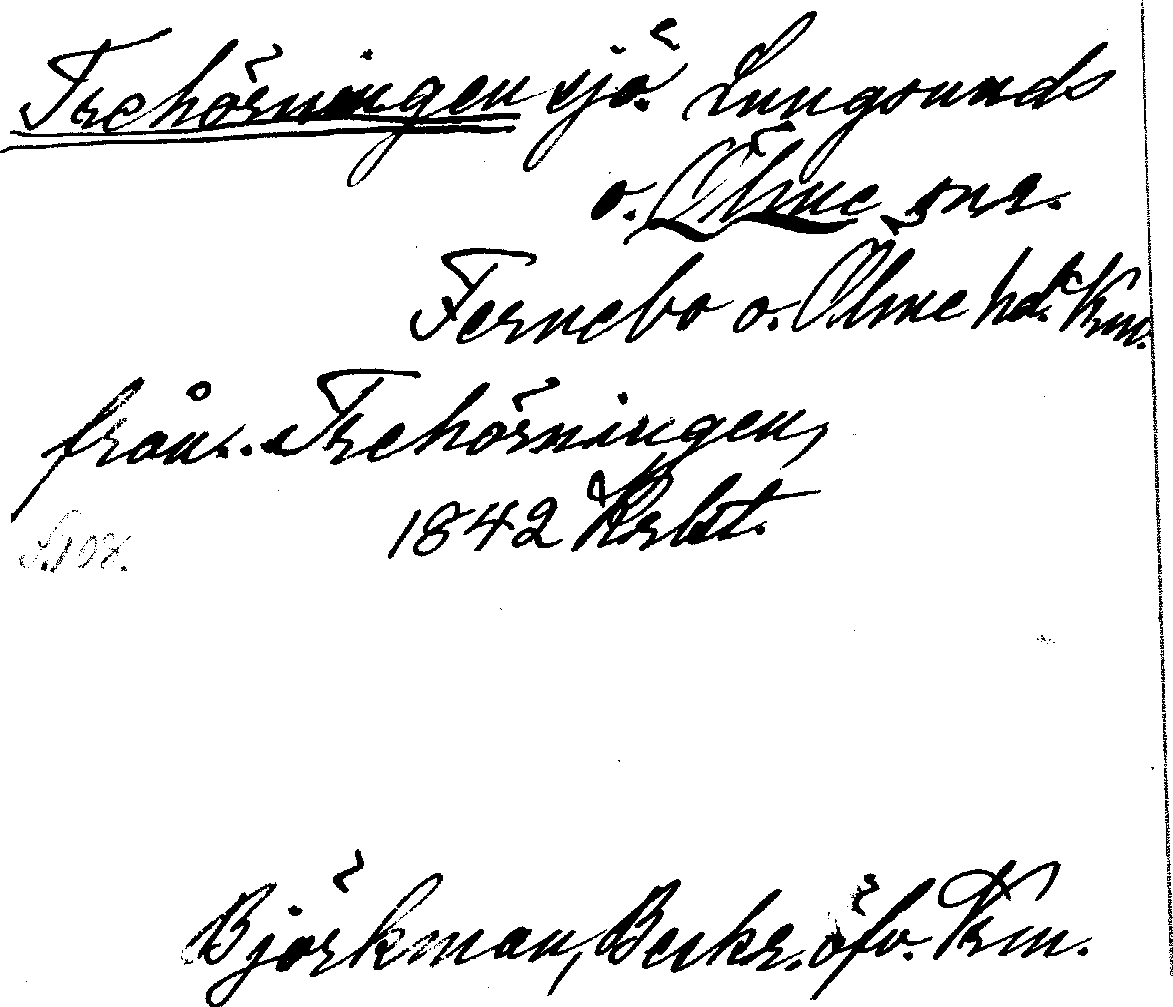 Trehörningen sjö. Lungsunds
o. Ölme snr.
Fernebo o. Ölme hd. Krm.
från.. Trehörningen,
1842 Krbt.
S. 108.
Björkman, Beskr. öfv. Krm.